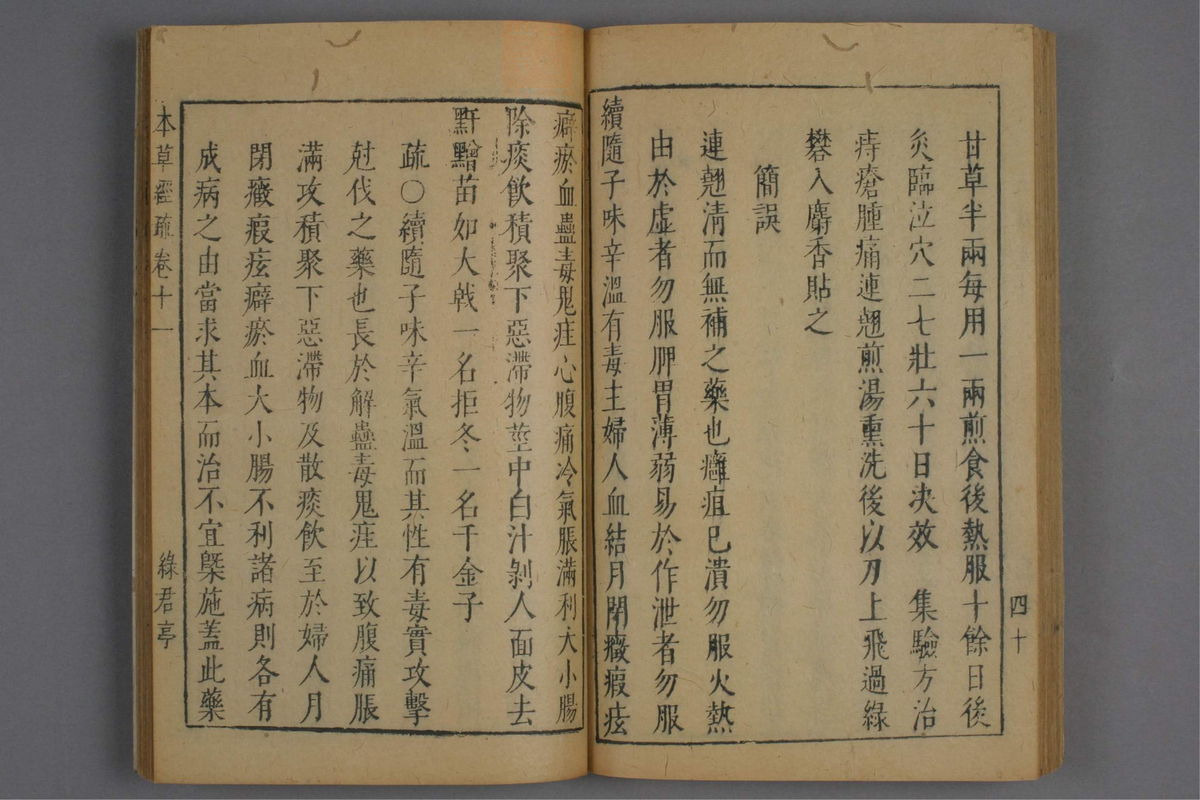 甘草半兩每用一兩煎食後熱服十餘日後
灸臨泣穴二七壯六十日决效　集驗方治
痔瘡腫痛連翹煎湯熏洗後以刀上飛過綠
礬入麝香貼之
簡誤
連翹淸而無補之藥也癰疽已潰勿服火熱
由於虛者勿服脾胃薄弱易於作泄者勿服
續隨子味辛溫有毒主婦人血結月閉癥瘕痃
四十
癖瘀血蠱毒鬼疰心腹痛冷氣脹滿利大小腸
除痰飲積聚下惡滯物莖中白汁剝人面皮去
䵟黵苗如大戟一名拒冬一名千金子
疏〇續隨子味辛氣溫而其性有毒實攻擊
尅伐之藥也長於解蠱毒鬼疰以致腹痛脹
滿攻積聚下惡滯物及散痰飲至於婦人月
閉癥瘕痃癖瘀血大小腸不利諸病則各有
成病之由當求其本而治不宜槩施蓋此藥
本草經疏卷十一
綠君亭